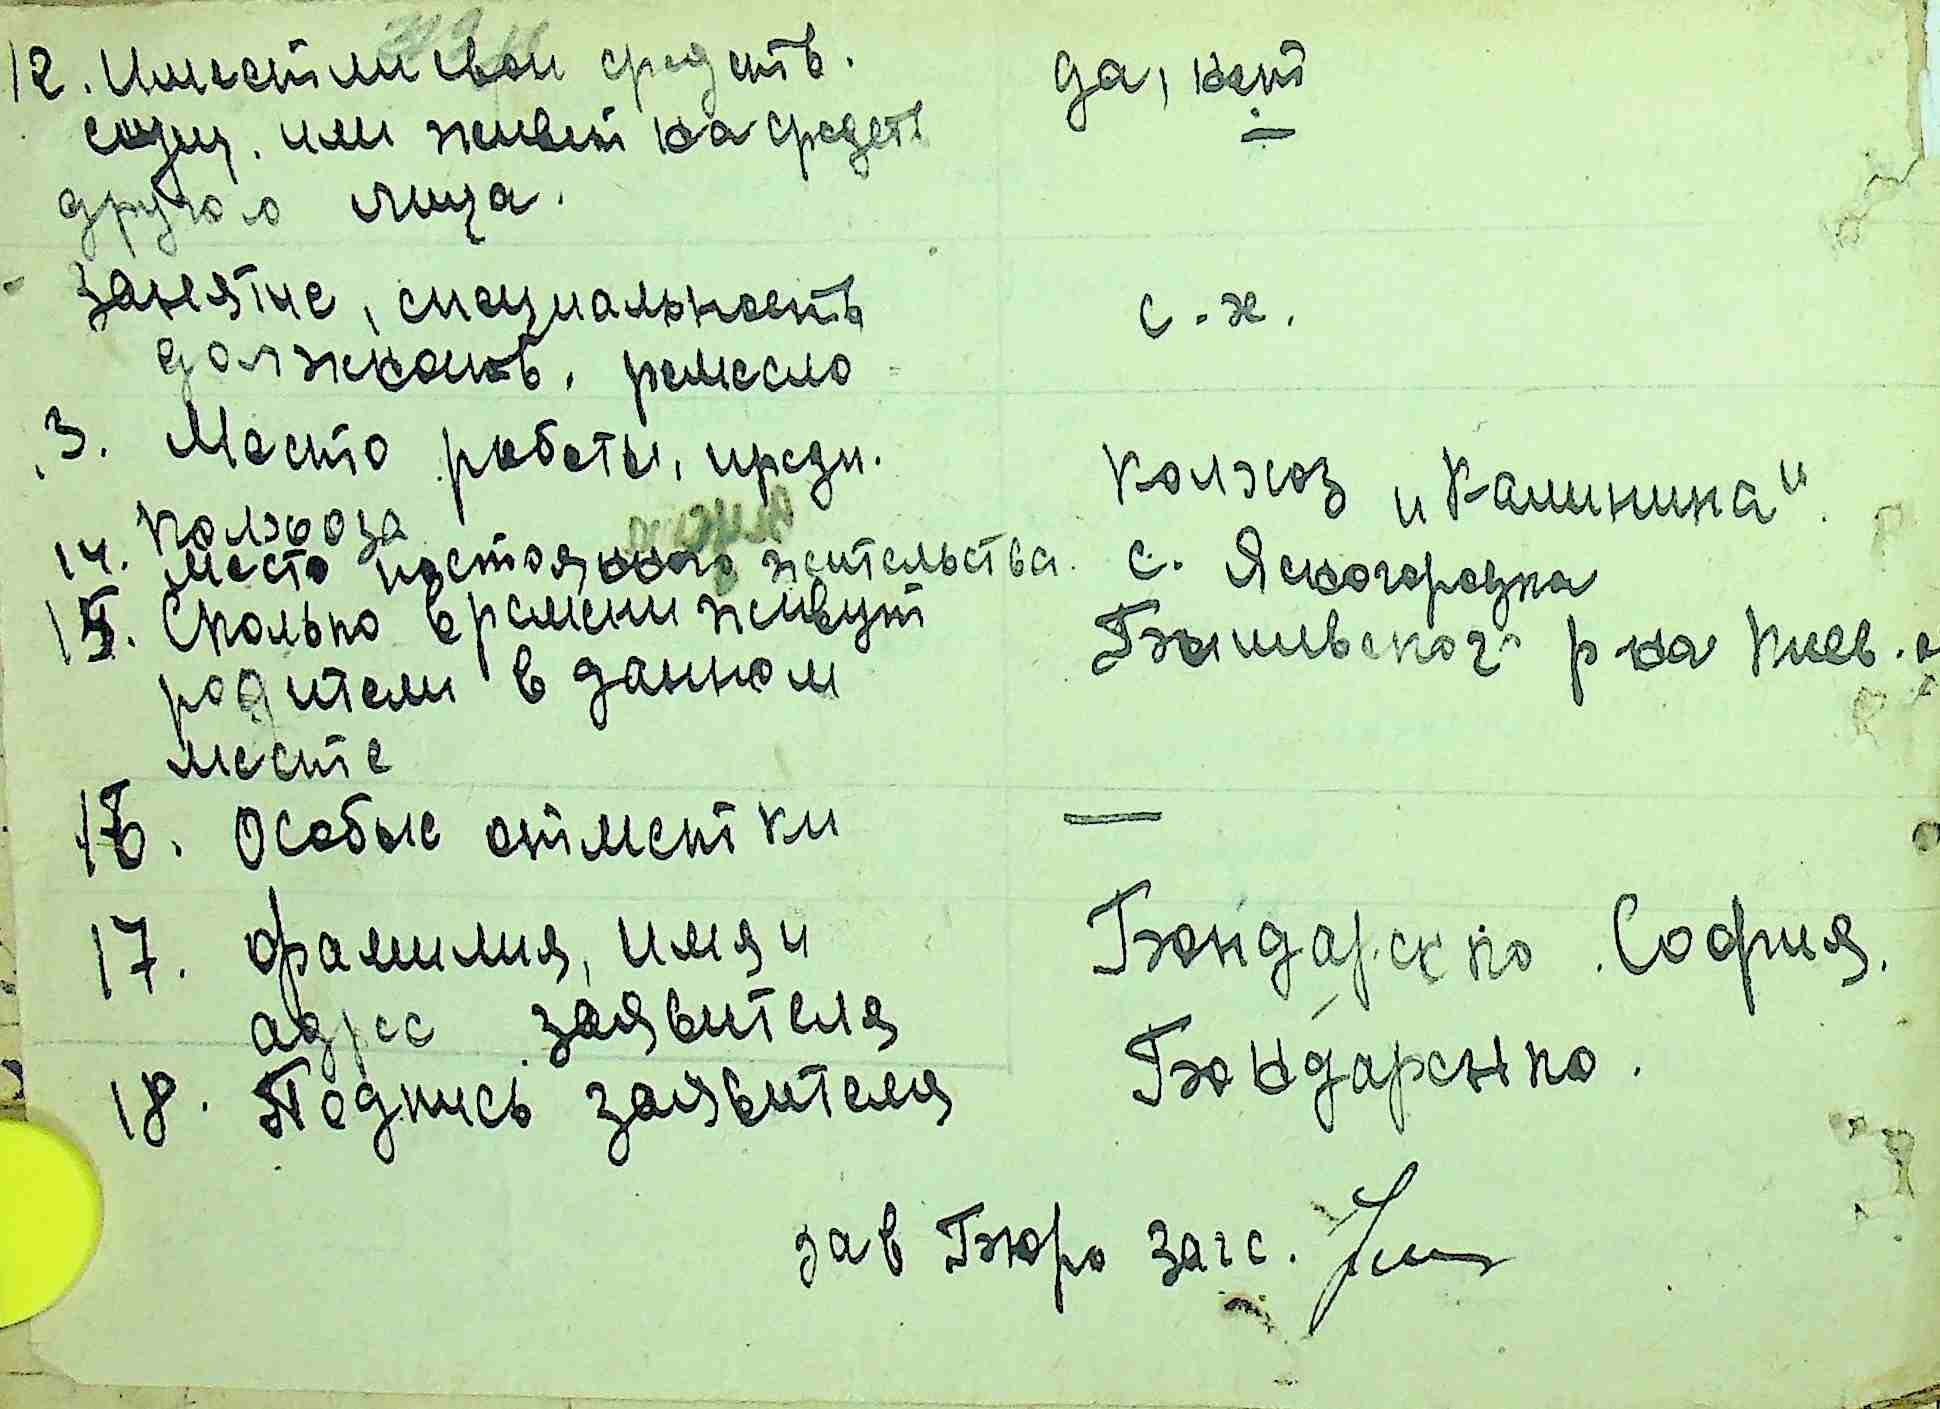 12. Имеет ли свои средств. да, нет
сущ. или живет на средств
другого лица.
занятие, специальность с.х.
должность, ремесло
3. Место работы, предп. колхоз "Калинина"
колхоза
14. место постоянного жительства. с. Ясногородка
15. Сколько времени живут Бышевского р-на Киев. о
родители в данном
месте
16. Особые отметки —
17. Фамилия, имя и Бондаренко София.
адрес заявителя
18. Подпись заявителя Бондаренко.
зав Бюро Загс.